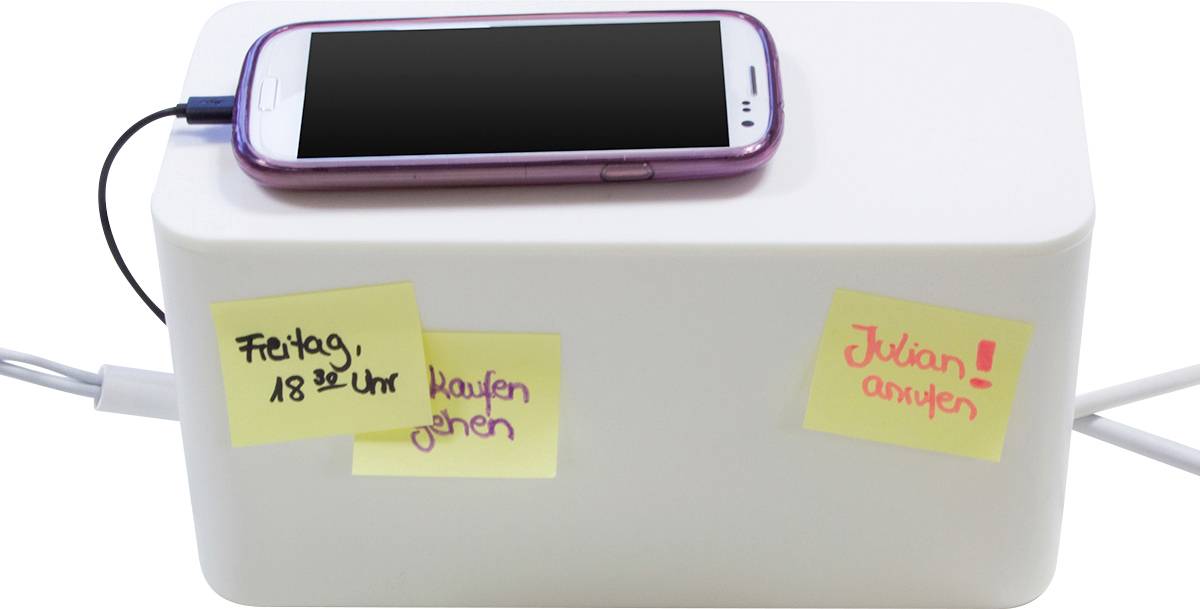 Freitag,
18 30 Uhr
kaufen
gehen
Julian!
anrufen